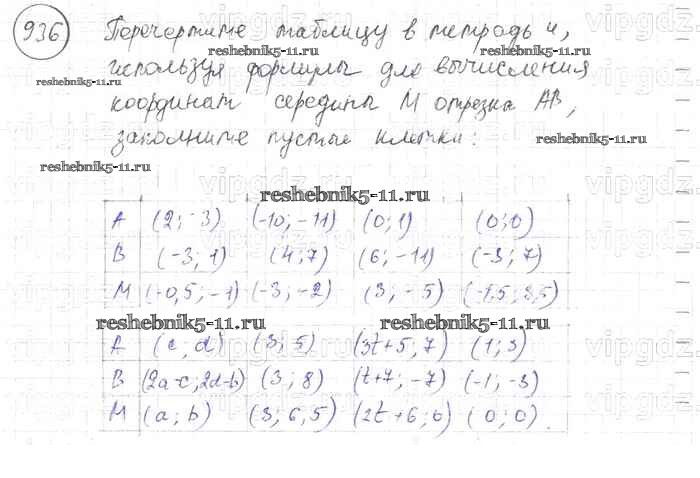 936 Перечертите таблицу в тетрадь и,
reshebnik5-11.ru reshebnik5-11.ru
используя формулы для вычисления
reshebnik5-11.ru
координат середины М отрезка АВ,
заполните пустые клетки:
reshebnik5-11.ru reshebnik5-11.ru
vipgdz.ru
reshebnik5-11.ru
А (2; -3) (-10; -11) (0; 1) (0; 0)
В (-3; 1) (4; 7) (6; -11) (-3; 7)
М (-0,5; -1) (-3; -2) (3; -5) (-1,5; 3,5)
reshebnik5-11.ru reshebnik5-11.ru
А (c, d) (3; 5) (3t+5, 7) (1; 3)
В (2a-c; 2d-b) (3; 8) (t+7; -7) (-1; -3)
М (a; b) (3; 6,5) (2t+6; 0) (0; 0).